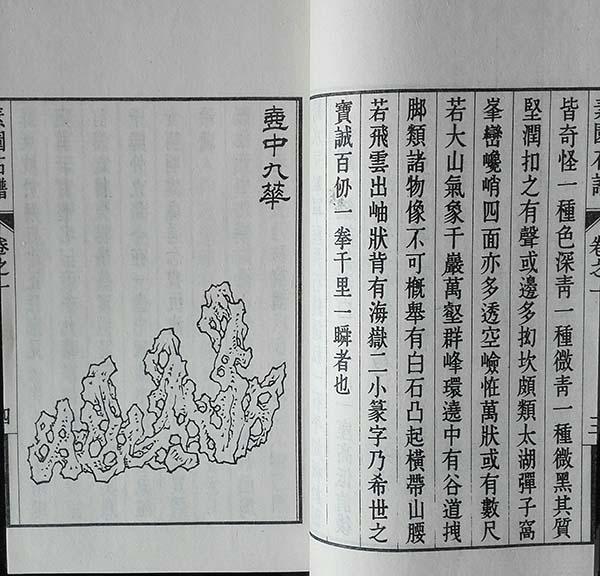 素園石譜 卷之一 三
皆奇怪一種色深青一種微青一種微黑其質
堅潤扣之有聲或邊多拗坎頗類太湖彈子窩
峯巒巉峭四面亦多透空嶮恠萬狀或有數尺
若大山氣象千巖萬壑群峰環遶中有谷道拽
脚類諸物像不可概舉有白石凸起橫帶山腰
若飛雲出岫狀背有海嶽二小篆字乃希世之
寶誠百仞一拳千里一瞬者也
壺中九華
素園石譜 卷之一 四